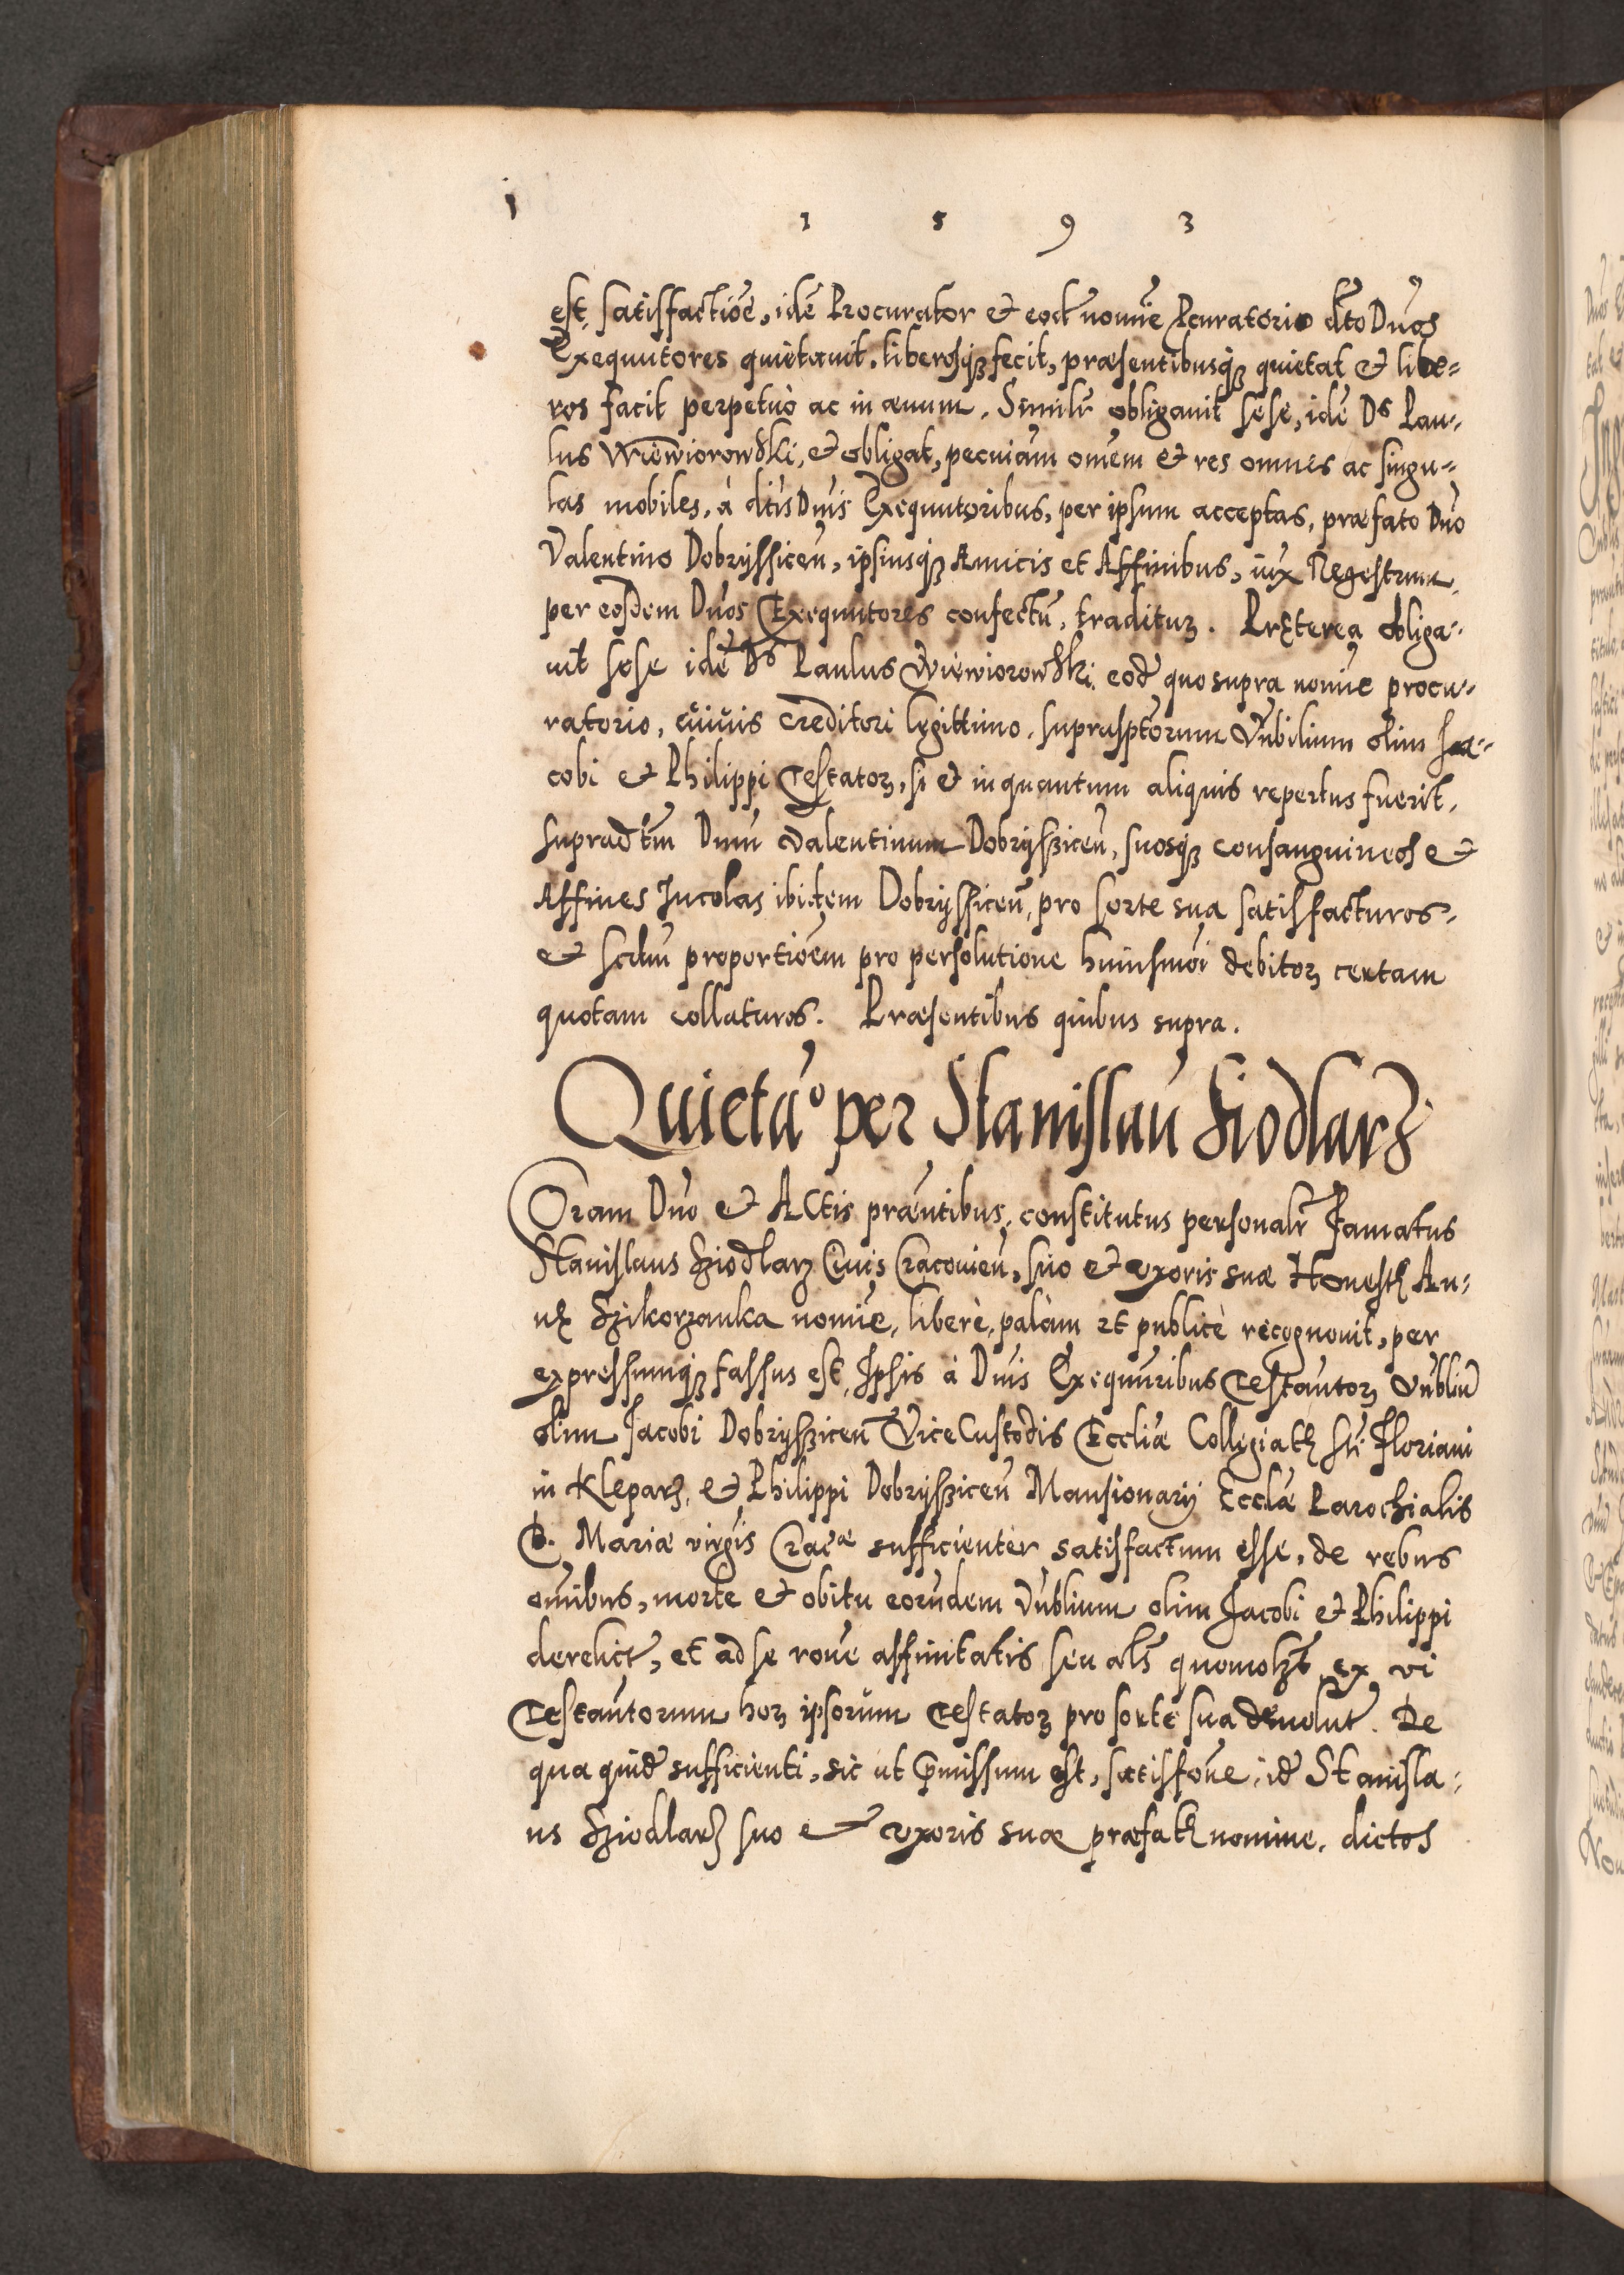 1 5 9 3
est, satisfactiõe, idẽ Procurator et eod̃ nomĩe Pcuratorio dto Dños
Exequutores quietauit, liberosq̃ fecit, præsentibusq̃ quietat et libe=
ros facit perpetuò ac in æuum. Similr̃ obligauit sese, idẽ Ds Pau=
lus Wiewiorowski, et obligat, pecuiam omẽm et res omnes ac singu=
las mobiles, à dtis Dnis Exequutoribus, per ipsum acceptas, præfato Dño
Valentino Dobryssiceñ, ipsiusq̃ Amicis et Affinibus, iux Regestrum,
per eosdem Dños Exequutores confectũ, traditurꝫ. Pręterea obliga=
uit sese idẽ Ds Paulus Wiewiorowski, eod̃ quo supra nomĩe procu=
ratorio, cuiuis creditori legittimo, suprasptorum Vñbilium olim Ja=
cobi et Philippi Testatorꝫ, si et inquantum aliquis repertus fuerit,
supradtm̃ Dnũ Valentinum Dobrysziceñ, suosq̃ consanguineos et
Affines Incolas ibidem Dobryssiceñ, pro sorte sua satisfacturos,
et scdm̃ proportiõem pro persolutione huiusmõi debitorꝫ certam
quotam collaturos. Præsentibus quibus supra.
Quietaõ per Stanislaũ Siodlarz
Coram Dño et Actis præñtibus, constitutus personalr̃ Famatus
Stanislaus Sziodlarz Ciuis Cracouieñ, suo et uxoris suæ Honestę An=
nę Szikorzanka nomĩe, liberè, palàm et publicè recognouit, per
expressumq̃ fassus est, Ipsis à Dnis Exequũribus Testañtorꝫ Vñbliũ
olim Jacobi Dobryszicen ViceCustodis Eccliæ Collegiatę Sti Floriani
in Kleparz, et Philippi Dobryszicen Mansionarij Ecclæ Parochialis
B. Mariæ virgis Cracæ sufficienter satisfactum esse, de rebus
omĩbus, morte et obitu eorũdem Vñblium olim Jacobi et Philippi
derelict̃, et ad se rõne affinitatis seu als̃ quomolzt̃ ex vi
Testañtorum horꝫ ipsorũm Testatorꝫ pro sorte sua deuolut̃. De
qua quid̃ sufficienti, sic ut p̃missum est, satisfõne, id̃ Stanisla=
us Sziodlarz suo et uxoris suæ præfatę nomine, dictos